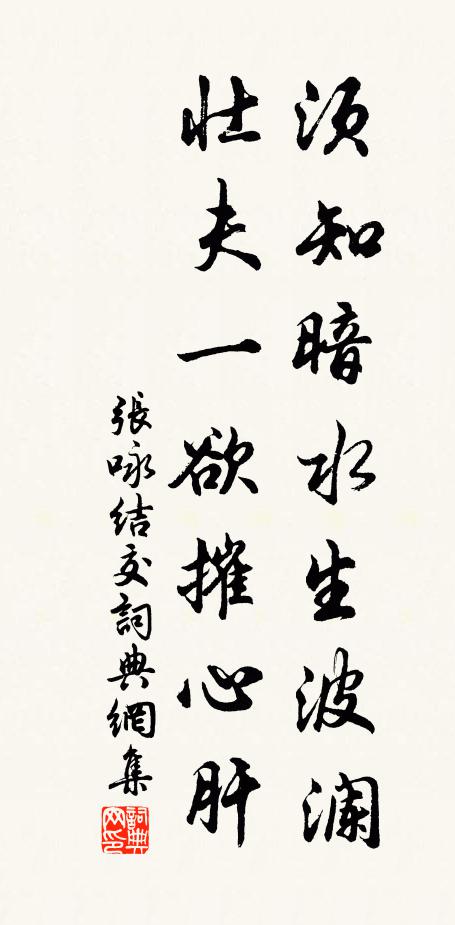 須知暗水生波瀾
壯夫一欲摧心肝
張咏結交詞典網集
詞典网印